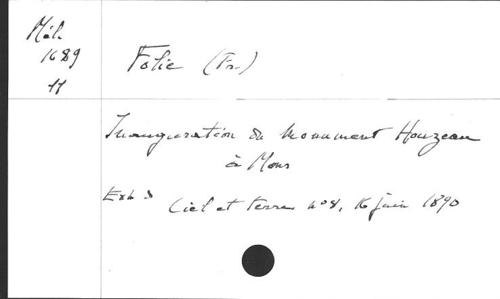 Mél.
1689
11
Folie (Fr.)
Inauguration du Monument Houzeau
à Mons
Ciel et terre, n° 8, 16 juin 1890